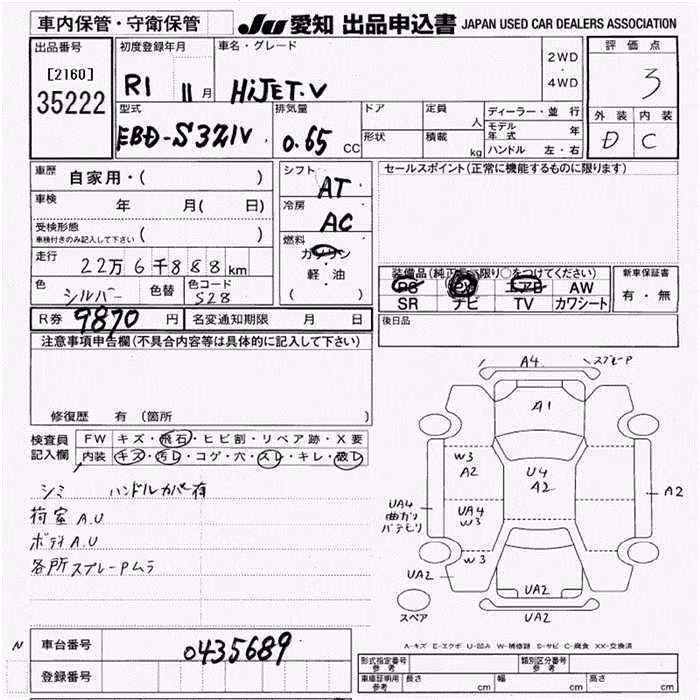 車内保管・守衛保管 JU 愛知 出品申込書 JAPAN USED CAR DEALERS ASSOCIATION
出品番号 初度登録年月 車名・グレード 2WD・4WD 評価点
[2160] R1 11月 HiJET.V 3
35222 型式 排気量 ドア 定員 人 ディーラー・並行 外装 内装
EBD-S321V 0.65 CC 形状 積載 kg モデル年式 年 D C
ハンドル 左・右
車歴 自家用・( ) シフト AT セールスポイント(正常に機能するものに限ります)
車検 年 月( 日) 冷房 AC
受検形態 車検付きのみ記入して下さい ( )
燃料 ガソリン・軽・油 ( )
走行 22万6千888km 装備品(純正品に限り○をつけてください) 新車保証書
色 シルバー 色替 色コード S28 PS PW エアB AW 有・無
SR ナビ TV カワシート
R券 9870円 名変通知期限 月 日 後日品
注意事項申告欄(不具合内容等は具体的に記入して下さい)
修復歴 有 (箇所
検査員記入欄 FW キズ・飛石・ヒビ割・リペア跡・X要
内装 キズ・汚レ・コゲ・穴・スレ・キレ・破レ
シミ ハンドルカバー有
荷室 A.U
ボディ A.U
各所スプレーPムラ
A4 スプレーP
A1
W3
A2
U4
A2
A2
UA4
曲ガリ
バテモリ
UA4
W3
W3
UA2
UA2
スペア
UA2
A-キズ E-エクボ U-凹み W-補修跡 S-サビ C-腐食 XX-交換済
N 車台番号 0435689
登録番号
形式指定番号 参考 類別区分番号 参考
車庫証明用 参考 長さ cm 幅 cm 高さ cm